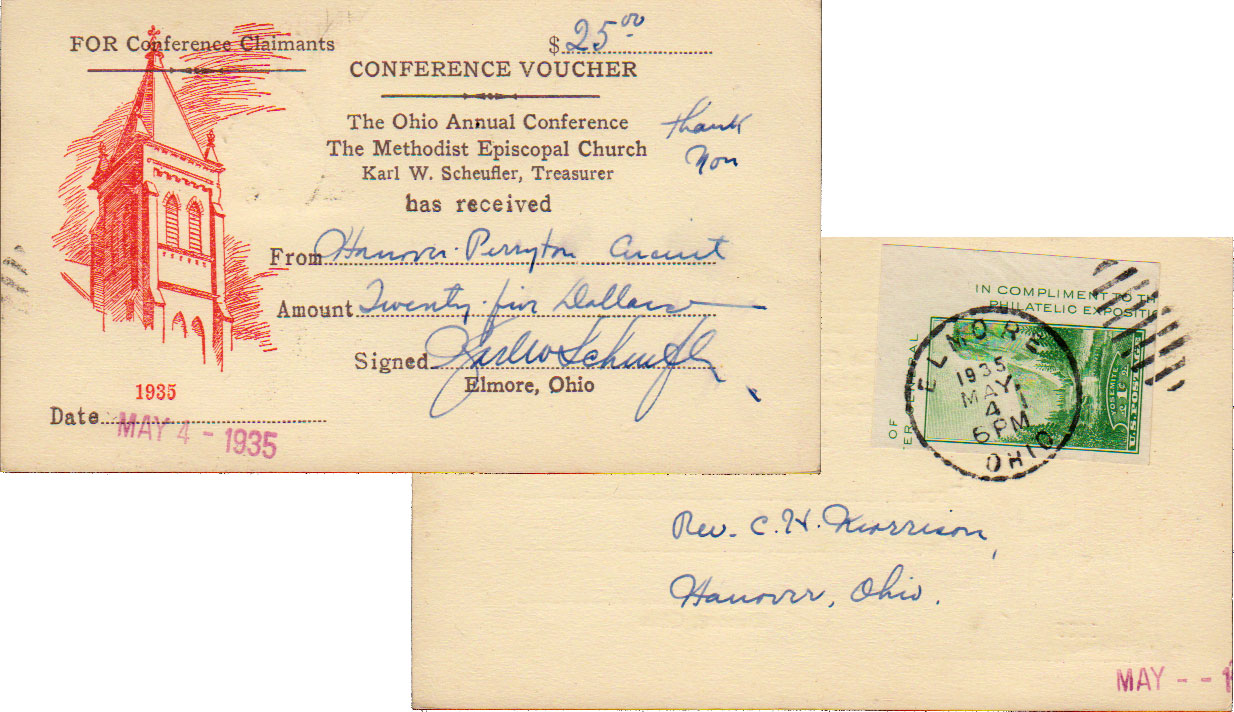 FOR Conference Claimants
$25.00
CONFERENCE VOUCHER
The Ohio Annual Conference
The Methodist Episcopal Church
Karl W. Scheufler, Treasurer
has received
Thank
You
From Hanover-Perryton Circuit
Amount Twenty-five Dollars
Signed Karl W Scheufler
Elmore, Ohio
1935
Date MAY 4 - 1935
IN COMPLIMENT TO TH
PHILATELIC EXPOSITI
OF
ER
YOSEMITE
1¢
U.S. POSTAGE
ELMORE
1935
MAY
4
6 PM
OHIO
Rev. C. H. Morrison,
Hanover, Ohio.
MAY - - 1